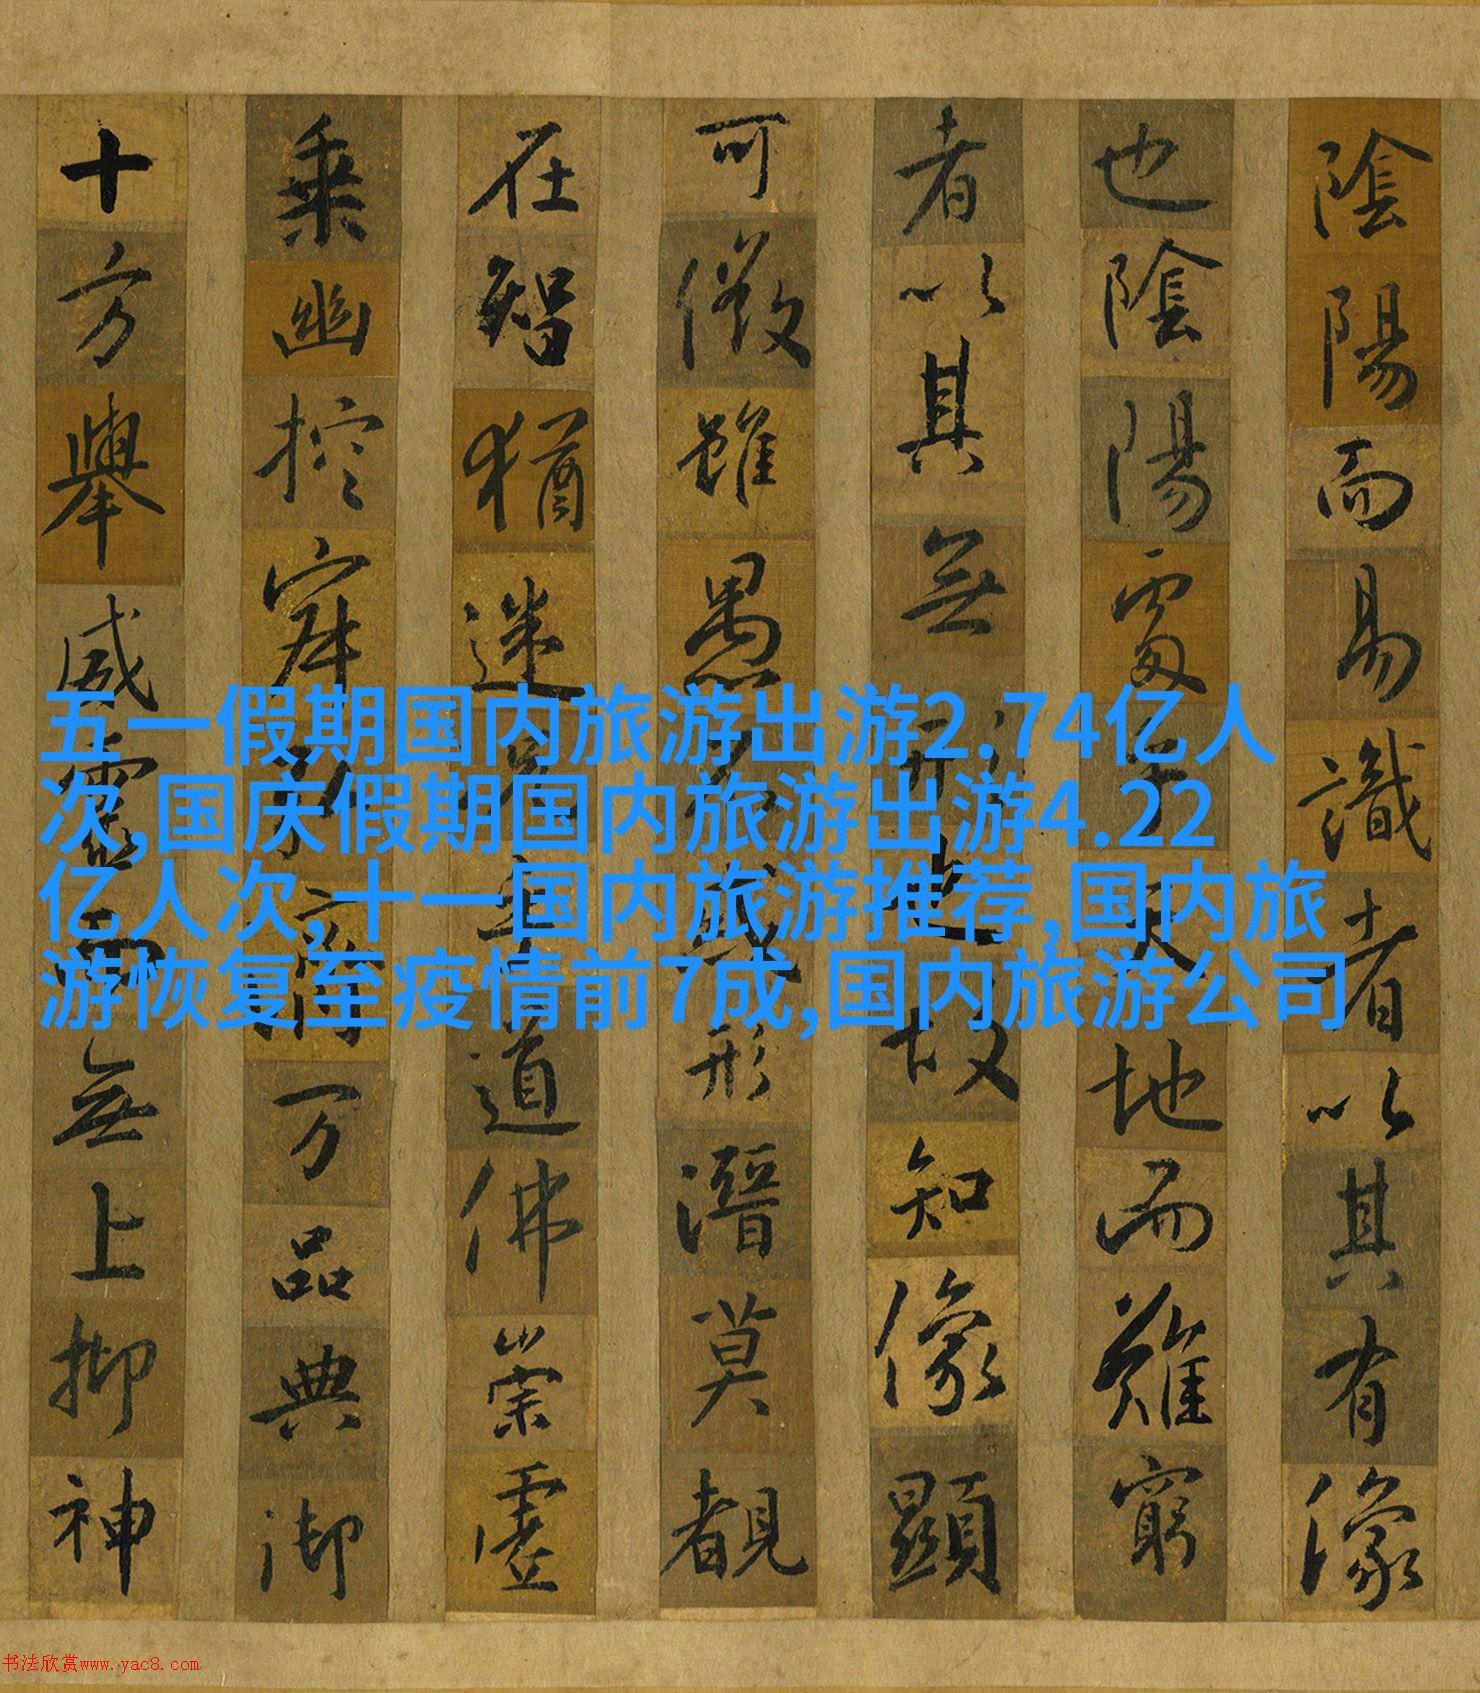 陰陽而易識者以其有像
也陰陽處乎天地而難窮
者以其無形也故知像顯
可徵雖愚不惑形潛莫覩
在智猶迷況乎道佛崇虛
乗幽控寂弘濟万品典御
十方舉威靈而無上抑神
五一假期国内旅游出游2.74亿人
次,国庆假期国内旅游出游4.22
亿人次,十一国内旅游推荐,国内旅
游恢复至疫情前7成,国内旅游公司
书法欣赏www.yac8.com